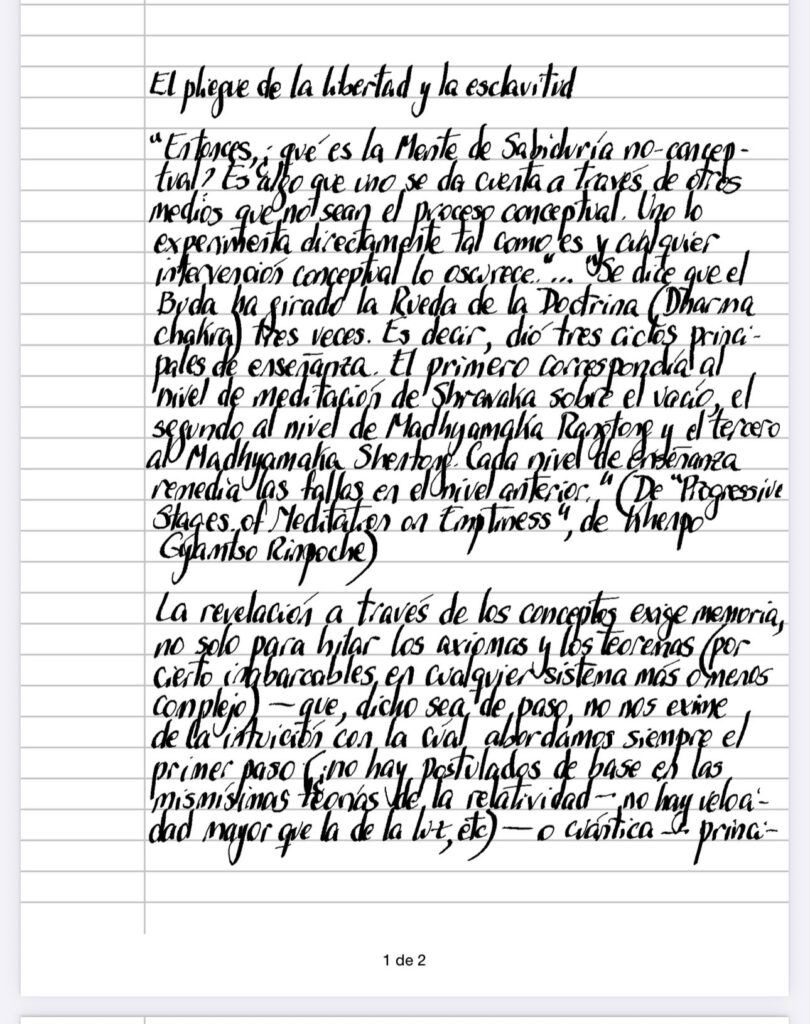 El pliegue de la libertad y la esclavitud
"Entonces, ¿qué es la Mente de Sabiduría no-concep-
tual? Es algo que uno se da cuenta a través de otros
medios que no sean el proceso conceptual. Uno lo
experimenta directamente tal como es y cualquier
intervención conceptual lo oscurece."... "Se dice que el
Buda ha girado la Rueda de la Doctrina (Dharma
chakra) tres veces. Es decir, dió tres ciclos princi-
pales de enseñanza. El primero correspondía al
nivel de meditación de Shravaka sobre el vacío, el
segundo al nivel de Madhyamaka Rangtong y el tercero
al Madhyamaka Shentong. Cada nivel de enseñanza
remedia las fallas en el nivel anterior." (De "Progressive
Stages of Meditation on Emptiness", de Khenpo
Gyamtso Rinpoche)
La revelación a través de los conceptos exige memoria,
no solo para hilar los axiomas y los teoremas (por
cierto inabarcables en cualquier sistema más o menos
complejo) — que, dicho sea de paso, no nos exime
de la intuición con la cual abordamos siempre el
primer paso (¡no hay postulados de base en las
mismísimas teorías de la relatividad — no hay veloci-
dad mayor que la de la luz, etc) — o cuántica — princi-
1 de 2